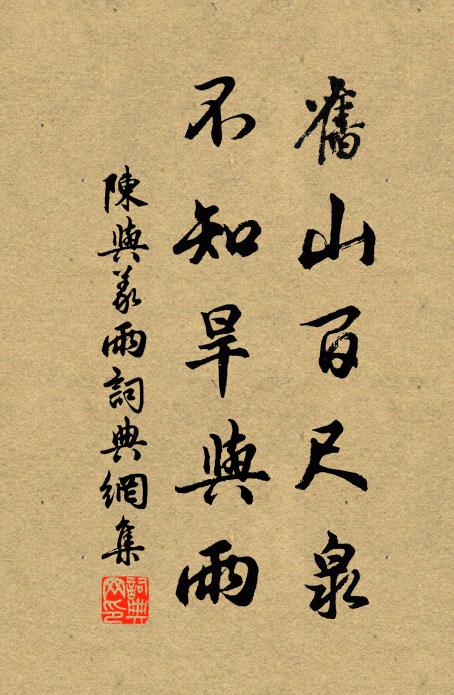 舊山百尺泉
不知旱與雨
陳與義雨詞典網集
詞典網印